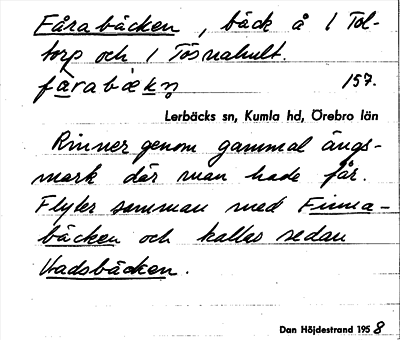 Fårabäcken, bäck å 1 Tol-
torp och 1 Tösnahult.
fårabäkn 157.
Lerbäcks sn, Kumla hd, Örebro län
Rinner genom gammal ängs-
mark där man hade får.
Flyter samman med Finna-
bäcken och kallas sedan
Vadsbäcken.
Dan Höjdestrand 1958